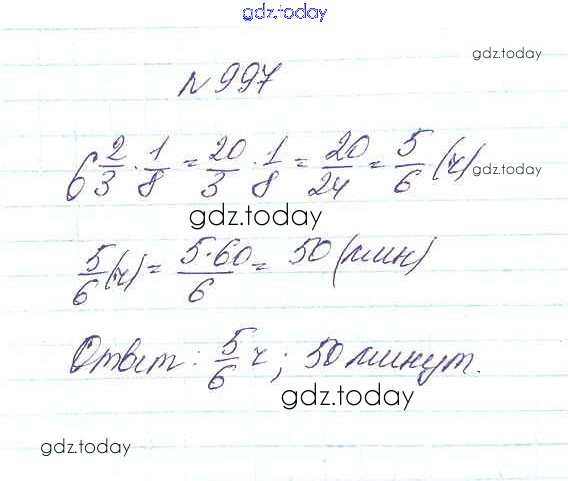 gdz.today
№ 997
gdz.today
6 2/3 · 1/8 = 20/3 · 1/8 = 20/24 = 5/6 (ч)
gdz.today
gdz.today
5/6 (ч) = 5·60/6 = 50 (мин)
Ответ: 5/6 ч; 50 минут.
gdz.today
gdz.today